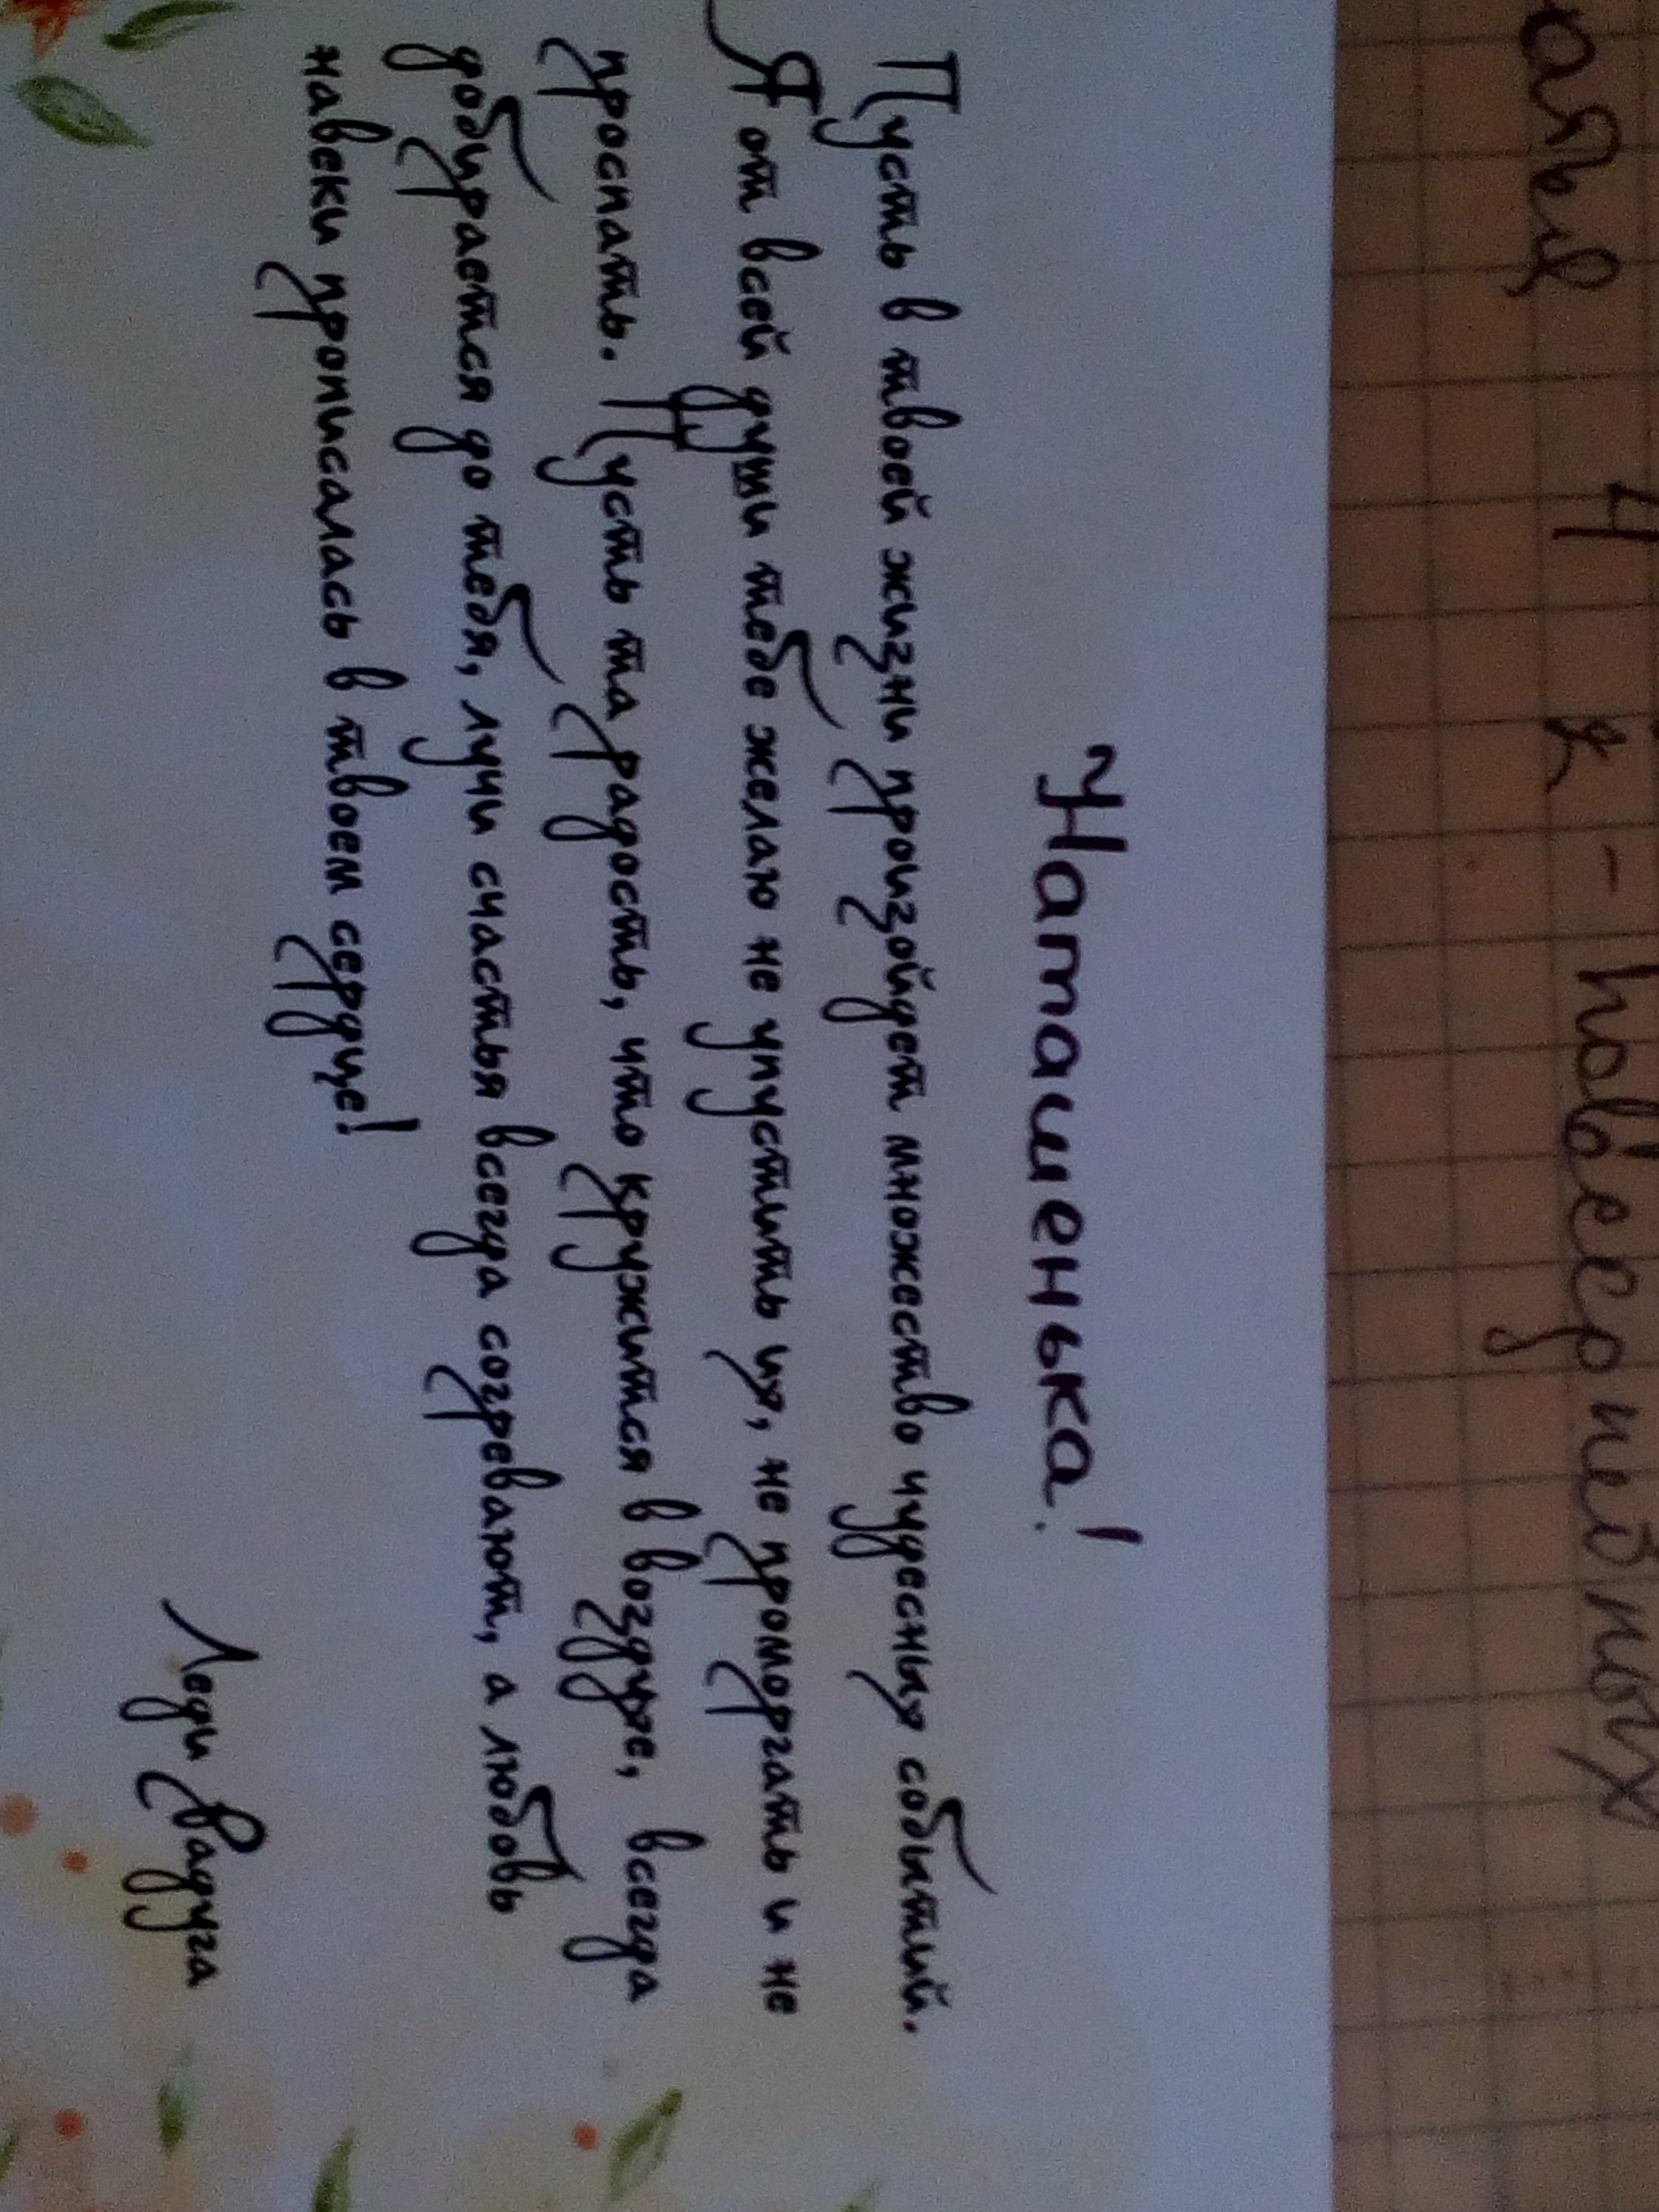 Наташенька!
Пусть в твоей жизни произойдет множество чудесных событий.
Я от всей души тебе желаю не упустить их, не проморгать и не
проспать. Пусть та радость, что кружится в воздухе, всегда
добирается до тебя, лучи счастья всегда согревают, а любовь
навеки прописалась в твоем сердце!
Леди Радуга